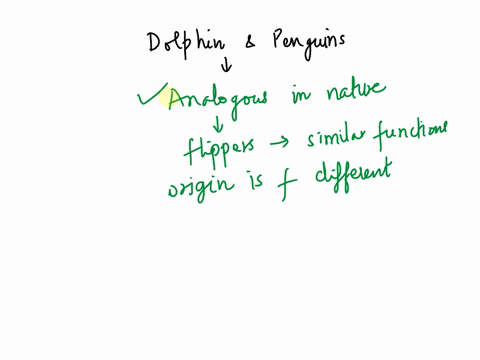 Dolphin & Penguins
↓
✓ Analogous in nature
↓
flippers → similar functions
origin is f different